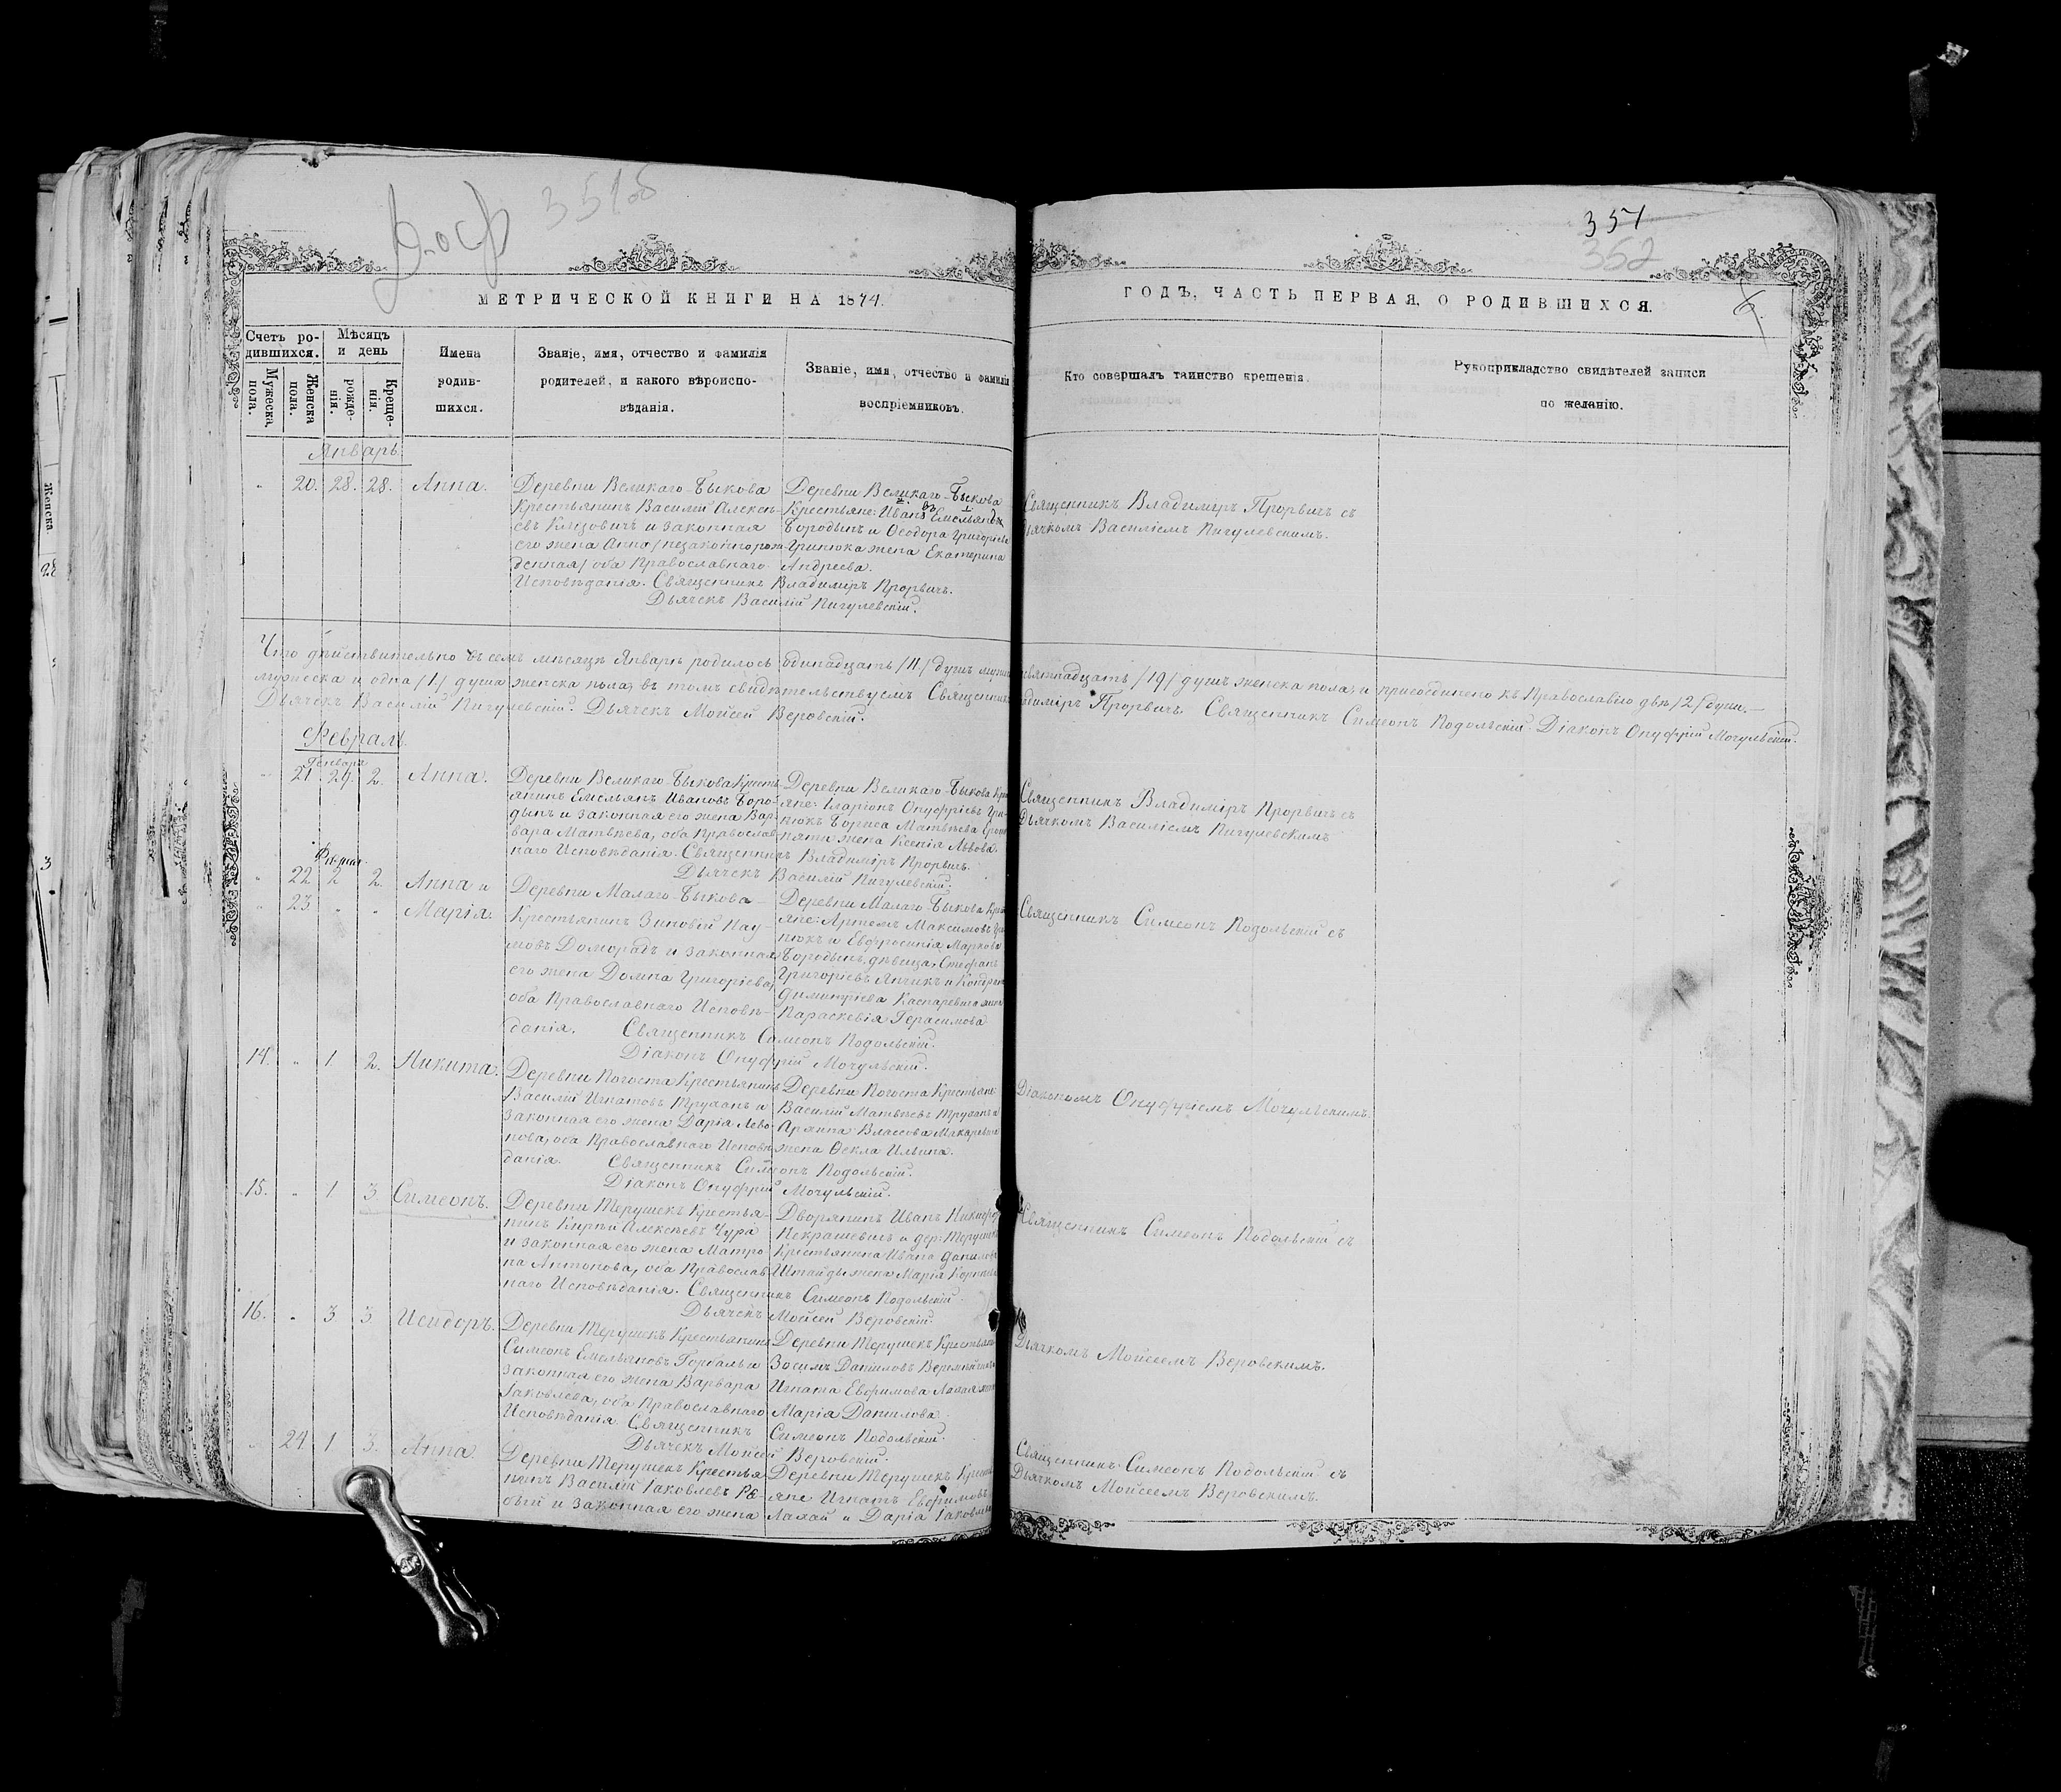 351об
351
352
МЕТРИЧЕСКОЙ КНИГИ НА 1874.
ГОДЪ, ЧАСТЬ ПЕРВАЯ, О РОДИВШИХСЯ.
Счетъ ро-
дившихся.
Мужеска пола.
Женска пола.
Мѣсяцъ
и день
рожде-
нія.
Креще-
нія.
Имена
родив-
шихся.
Званіе, имя, отчество и фамилія
родителей, и какого вѣроиспо-
вѣданія.
Званіе, имя, отчество и фамилія
воспріемниковъ.
Кто совершалъ таинство крещенія.
Рукоприкладство свидѣтелей записи
по желанію.
Январь
20. 28. 28. Анна.
Деревни Великаго-Быкова
Крестьянинъ Василій Алексѣ-
евъ и законная
его жена Анна /незаконнорож-
денная/ оба Православнаго
Исповѣданія. Священникъ Владиміръ Прорвичъ.
Дьячекъ Василій Пигулевскій.
Деревни Великаго-Быкова
Крестьяне: Иванъ Емельяновъ
Бородынъ и Ѳеодора Григоріева
Гринюка жена Екатерина
Андреева.
Священникъ Владиміръ Прорвичъ съ
Дьячкомъ Василіемъ Пигулевскимъ.
Что дѣйствительно въ семъ мѣсяцѣ Январѣ родилось одинадцать /11/ душъ девятнадцать /19/ душъ женска пола, и присоединено къ Православію двѣ /2/ души.—
мужеска и одна /1/ душа женска пола, въ томъ свидѣтельствуемъ Священникъ Владиміръ Прорвичъ. Священникъ Симеонъ Подольскій. Діаконъ Онуфрій Мочульскій.
Дьячекъ Василій Пигулевскій. Дьячекъ Мойсей Веровскій.
Февраль.
Генваря
21. 29. 2. Анна.
Деревни Великаго-Быкова Кресть-
янинъ Емельянъ Ивановъ Боро-
дынъ и законная его жена Вар-
вара Матвѣева, оба Православ-
наго Исповѣданія. Священникъ Владиміръ Прорвичъ.
Дьячекъ Василій Пигулевскій.
Деревни Великаго-Быкова
яне: Иларіонъ Онуфріевъ Гри-
нюкъ Бориса Матвѣева
жена Ксенія Львова.
Священникъ Владиміръ Прорвичъ съ
Дьячкомъ Василіемъ Пигулевскимъ
22 2 2. Анна и
23 Марія.
Деревни Малаго-Быкова
Крестьянинъ Зиновій Нау-
мовъ Доморадъ и законная
его жена Домна Григоріева,
оба Православнаго Исповѣ-
данія. Священникъ Симеонъ Подольскій.
Діаконъ Онуфрій Мочульскій.
Деревни Малаго-Быкова
яне: Артемъ Максимовъ Гри-
нюкъ и Евфросинія Маркова
Бородынъ, дѣвица, Стефанъ
Григоріевъ Янчикъ и
Димитріева Каспаревича
Параскевія Герасимова
Священникъ Симеонъ Подольскій съ
14. 1 2. Никита.
Деревни Погоста Крестьянинъ
Василій Игнатовъ Труханъ и
законная его жена Дарія Лево-
нова, оба Православнаго Исповѣ-
данія. Священникъ Симеонъ Подольскій.
Діаконъ Онуфрій Мочульскій.
Деревни Погоста Крестьяне
Василій Матвѣевъ Труханъ и
Власова Макаревича
жена Ѳекла Ильина.
Діакономъ Онуфріемъ Мочульскимъ.
15. 1 3. Симеонъ.
Деревни Терушекъ Крестья-
нинъ Алексѣевъ Чура
и законная его жена Матро-
на Антонова, оба Православ-
наго Исповѣданія. Священникъ Симеонъ Подольскій.
Дьячекъ Мойсей Веровскій.
Дворянинъ Иванъ
Некрашевичъ и дер: Терушекъ
Крестьянина Ивана Данилова
жена Марія
Священникъ Симеонъ Подольскій съ
16. 3 3. Исидоръ.
Деревни Терушекъ Крестьянинъ
Симеонъ Емельяновъ и
законная его жена Варвара
Іаковлева, оба Православнаго
Исповѣданія. Священникъ Симеонъ Подольскій.
Дьячекъ Мойсей Веровскій.
Деревни Терушекъ Крестьяне
Зосимъ Даниловъ
Игната Евфимова Лахая жена
Марія Данилова
Дьячкомъ Мойсеемъ Веровскимъ.
24 1 3. Анна.
Деревни Терушекъ Крестья-
нинъ Василій Іаковлевъ Ря-
бый и законная его жена
Деревни Терушекъ
яне Игнатъ Евфимовъ
Лахай и Дарія Іаковлева
Священникъ Симеонъ Подольскій съ
Дьячкомъ Мойсеемъ Веровскимъ.